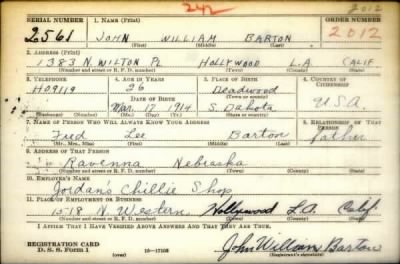 242
2012
SERIAL NUMBER 1. NAME (Print) ORDER NUMBER
2561 JOHN WILLIAM BARTON 2012
(First) (Middle) (Last)
2. ADDRESS (Print)
1383 N. WILTON PL HOLLYWOOD L.A. CALIF
(Number and street or R. F. D. number) (Town) (County) (State)
3. TELEPHONE 4. AGE IN YEARS 5. PLACE OF BIRTH 6. COUNTRY OF CITIZENSHIP
HO9119 26 Deadwood
DATE OF BIRTH (Town or county)
Mar. 17 1914 S. Dakota U.S.A.
(Exchange) (Number) (Mo.) (Day) (Yr.) (State or country)
7. NAME OF PERSON WHO WILL ALWAYS KNOW YOUR ADDRESS 8. RELATIONSHIP OF THAT PERSON
Fred Lee Barton father
(Mr., Mrs., Miss) (First) (Middle) (Last)
9. ADDRESS OF THAT PERSON
Ravenna Nebraska
(Number and street or R. F. D. number) (Town) (County) (State)
10. EMPLOYER'S NAME
Jordan's Chillie Shop
11. PLACE OF EMPLOYMENT OR BUSINESS
1518 N. Western Hollywood L.A. Calif
(Number and street or R. F. D. number) (Town) (County) (State)
I AFFIRM THAT I HAVE VERIFIED ABOVE ANSWERS AND THAT THEY ARE TRUE.
REGISTRATION CARD
D. S. S. Form 1 (over) 16—17105 John William Barton
(Registrant's signature)